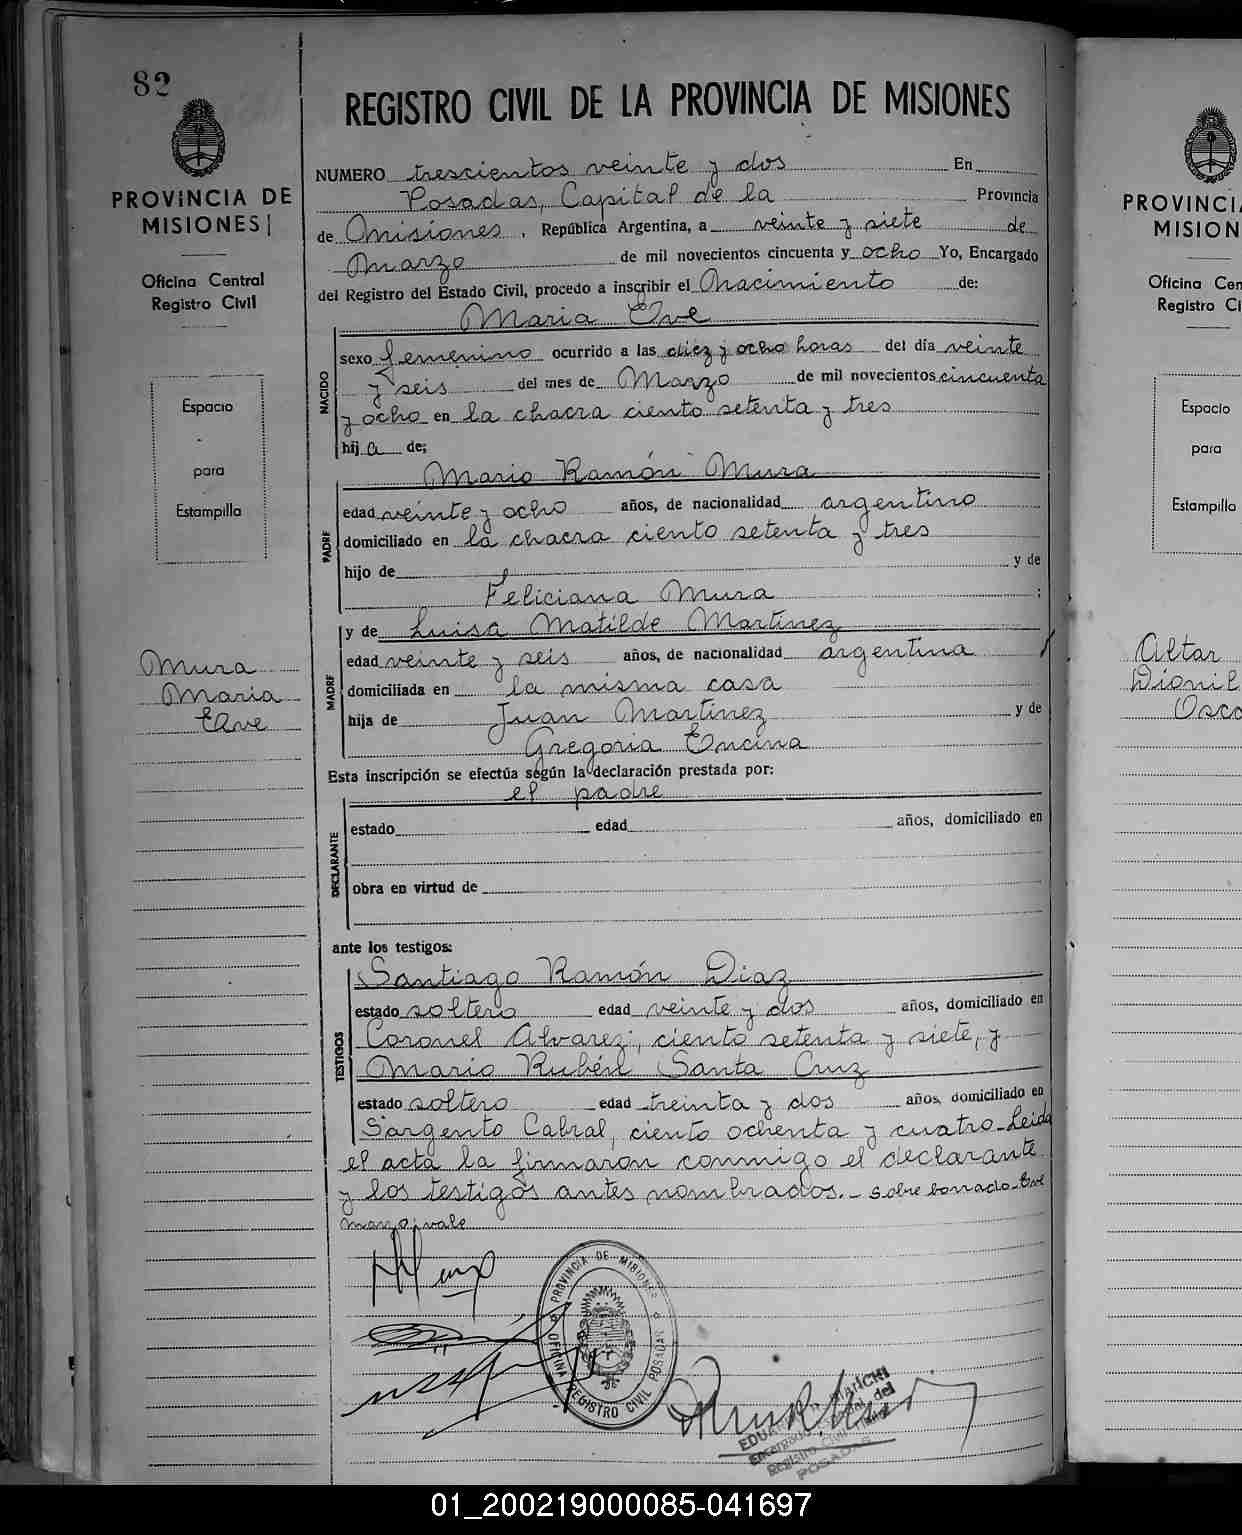 82
PROVINCIA DE
MISIONES
Oficina Central
Registro Civil
Espacio
para
Estampilla
Mura
Maria
Elve
REGISTRO CIVIL DE LA PROVINCIA DE MISIONES
NUMERO trescientos veinte y dos En
Posadas, Capital de la Provincia
de Misiones, República Argentina, a veinte y siete de
Marzo de mil novecientos cincuenta y ocho Yo, Encargado
del Registro del Estado Civil, procedo a inscribir el Nacimiento de:
NACIDO
Maria Eve
sexo femenino ocurrido a las diez y ocho horas del día veinte
y seis del mes de Marzo de mil novecientos cincuenta
y ocho en la chacra ciento setenta y tres
hija de;
PADRE
Mario Ramón Mura
edad veinte y ocho años, de nacionalidad argentino
domiciliado en la chacra ciento setenta y tres
hijo de y de
Feliciana Mura ;
MADRE
y de Luisa Matilde Martinez
edad veinte y seis años, de nacionalidad argentina
domiciliada en la misma casa
hija de Juan Martinez y de
Gregoria Encina
Esta inscripción se efectúa según la declaración prestada por:
DECLARANTE
el padre
estado edad años, domiciliado en
obra en virtud de
ante los testigos:
TESTIGOS
Santiago Ramón Diaz
estado soltero edad veinte y dos años, domiciliado en
Coronel Alvarez, ciento setenta y siete, y
Mario Rubén Santa Cruz
estado soltero edad treinta y dos años, domiciliado en
Sargento Cabral, ciento ochenta y cuatro-Leida
el acta la firmaron conmigo el declarante
y los testigos antes nombrados.- sobre borrado-Eve
marzo: vale
PROVINCIA DE MISIONES
OFICINA REGISTRO CIVIL POSADAS
Registro Civil
POSADAS
PROVINCIA
MISION
Oficina Cen
Registro Ci
Espacio
para
Estampilla
Altar
Dionil
Osca
01_200219000085-041697